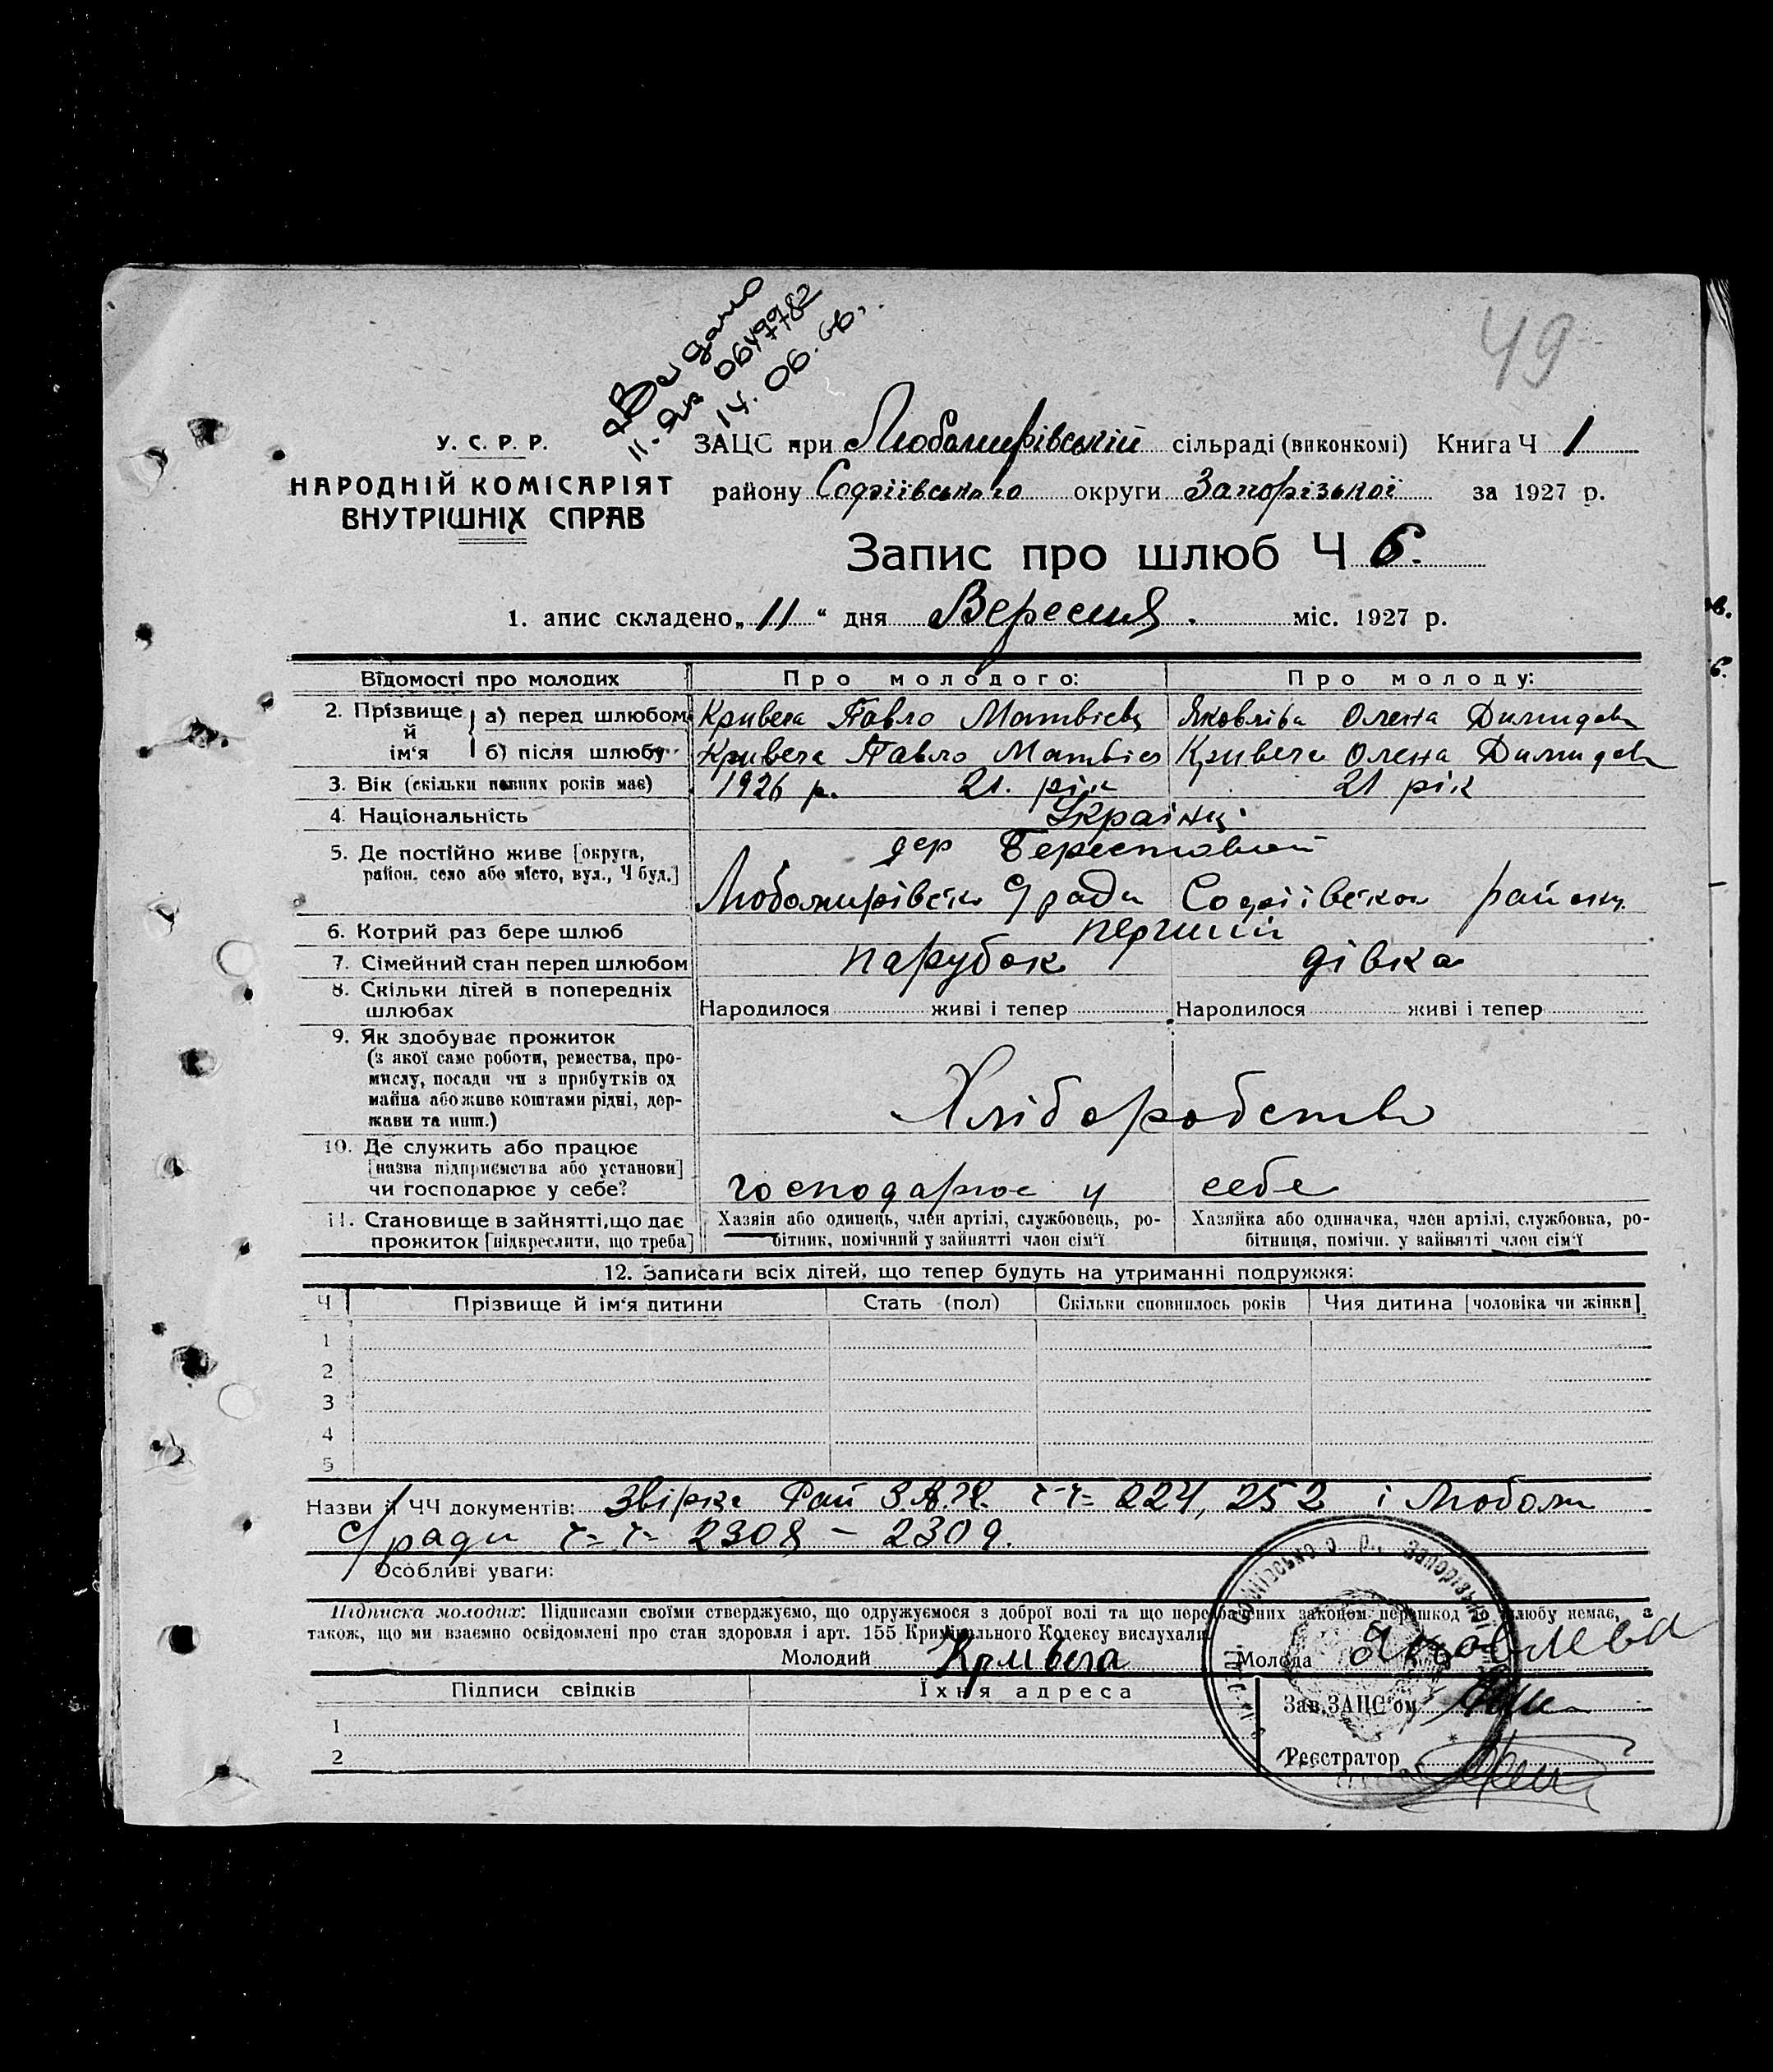 49
14. 06.
У. С. Р. Р.
НАРОДНІЙ КОМІСАРІЯТ
ВНУТРІШНІХ СПРАВ
ЗАЦС при Любамирівській сільраді (виконкомі) Книга Ч 1
району Софіївського округи Запорізької за 1927 р.
Запис про шлюб Ч 6.
1. апис складено „ 11 “ дня Вересня. міс. 1927 р.
Відомості про молодих Про молодого: Про молоду:
2. Прізвище й ім‘я а) перед шлюбом Кривега Павло Матвієв Яковліва Олена
б) після шлюбу Кривега Павло Матвієв Кривега Олена
3. Вік (скільки повних років має) 1926 р. 21. рік 21 рік
4. Національність Українц.
5. Де постійно живе [округа, район, село або місто, вул., Ч буд.] дер Берестовий
Любомирівськ С/ради Софіївском району
6. Котрий раз бере шлюб перший
7. Сімейний стан перед шлюбом парубок дівка
8. Скільки дітей в попередніх шлюбах Народилося живі і тепер Народилося живі і тепер
9. Як здобуває прожиток
(з якої саме роботи, ремества, про-
мислу, посади чи з прибутків од
майна або живе коштами рідні, дер-
жави та инш.) Хліборобств
10. Де служить або працює
[назва підприємства або установи]
чи господарює у себе? господарює у себе
11. Становище в зайнятті, що дає прожиток [підкреслити, що треба] Хазяїн або одинець, член артілі, службовець, ро-
бітник, помічний у зайнятті член сім‘ї
Хазяйка або одиначка, член артілі, службовка, ро-
бітниця, помічн. у зайнятті член сім‘ї
12. Записати всіх дітей, що тепер будуть на утриманні подружжя:
Ч Прізвище й ім‘я дитини Стать (пол) Скільки сповнилось років Чия дитина [чоловіка чи жінки]
1
2
3
4
5
Назви й ЧЧ документів: Звірка Рай ч-ч= 224, 252 і Любом
С/ради ч= ч= 2308 – 2309.
Особливі уваги:
Підписка молодих: Підписами своїми стверджуємо, що одружуємося з доброї волі та що передбачених законом перешкод до шлюбу немає, а
також, що ми взаємно освідомлені про стан здоровля і арт. 155 Кримінального Кодексу вислухали
Молодий Кривега Молода Яковлева
Підписи свідків Їхня адреса Зав. ЗАЦС‘ом
1
2 Реєстратор